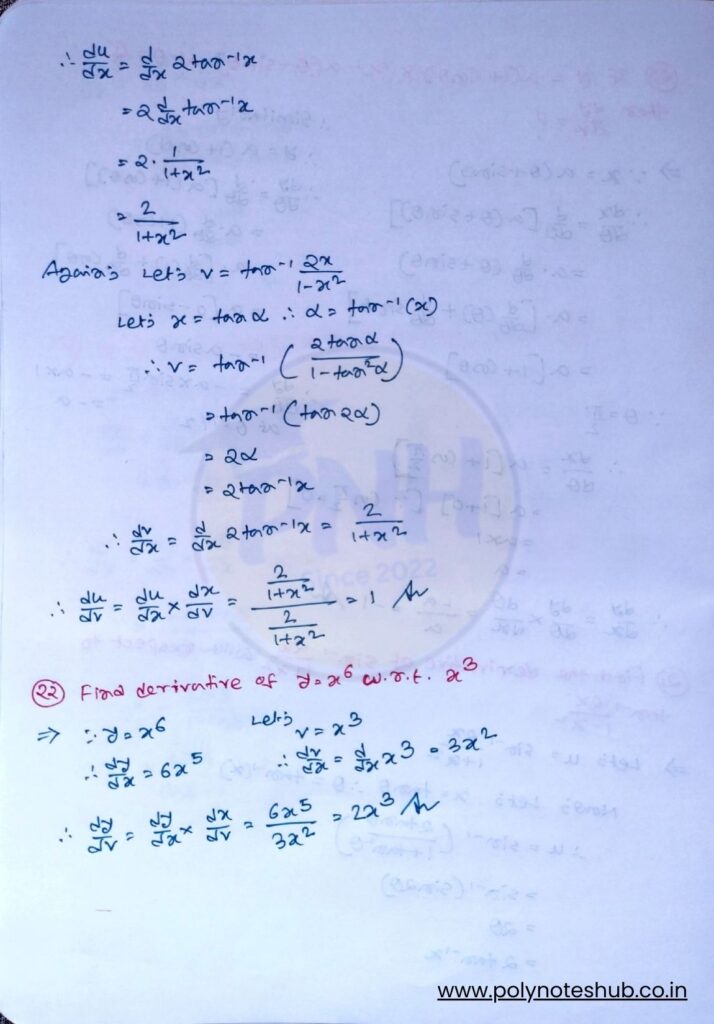 ∴ du/dx = d/dx 2tan⁻¹x
= 2 d/dx tan⁻¹x
= 2 · 1/(1+x²)
= 2/(1+x²)
Again, Let, v = tan⁻¹ 2x/(1-x²)
Let, x = tan α ∴ α = tan⁻¹(x)
∴ v = tan⁻¹ (2tanα/(1-tan²α))
= tan⁻¹ (tan 2α)
= 2α
= 2tan⁻¹x
∴ dv/dx = d/dx 2tan⁻¹x = 2/(1+x²)
∴ du/dv = du/dx × dx/dv = (2/(1+x²))/(2/(1+x²)) = 1 An
(22) Find derivative of y=x⁶ w.r.t. x³
⇒ ∵ y = x⁶ Let, v = x³
∴ dy/dx = 6x⁵ ∴ dv/dx = d/dx x³ = 3x²
∴ dy/dv = dy/dx × dx/dv = 6x⁵/3x² = 2x³ An
PNH
Since 2022
www.polynoteshub.co.in